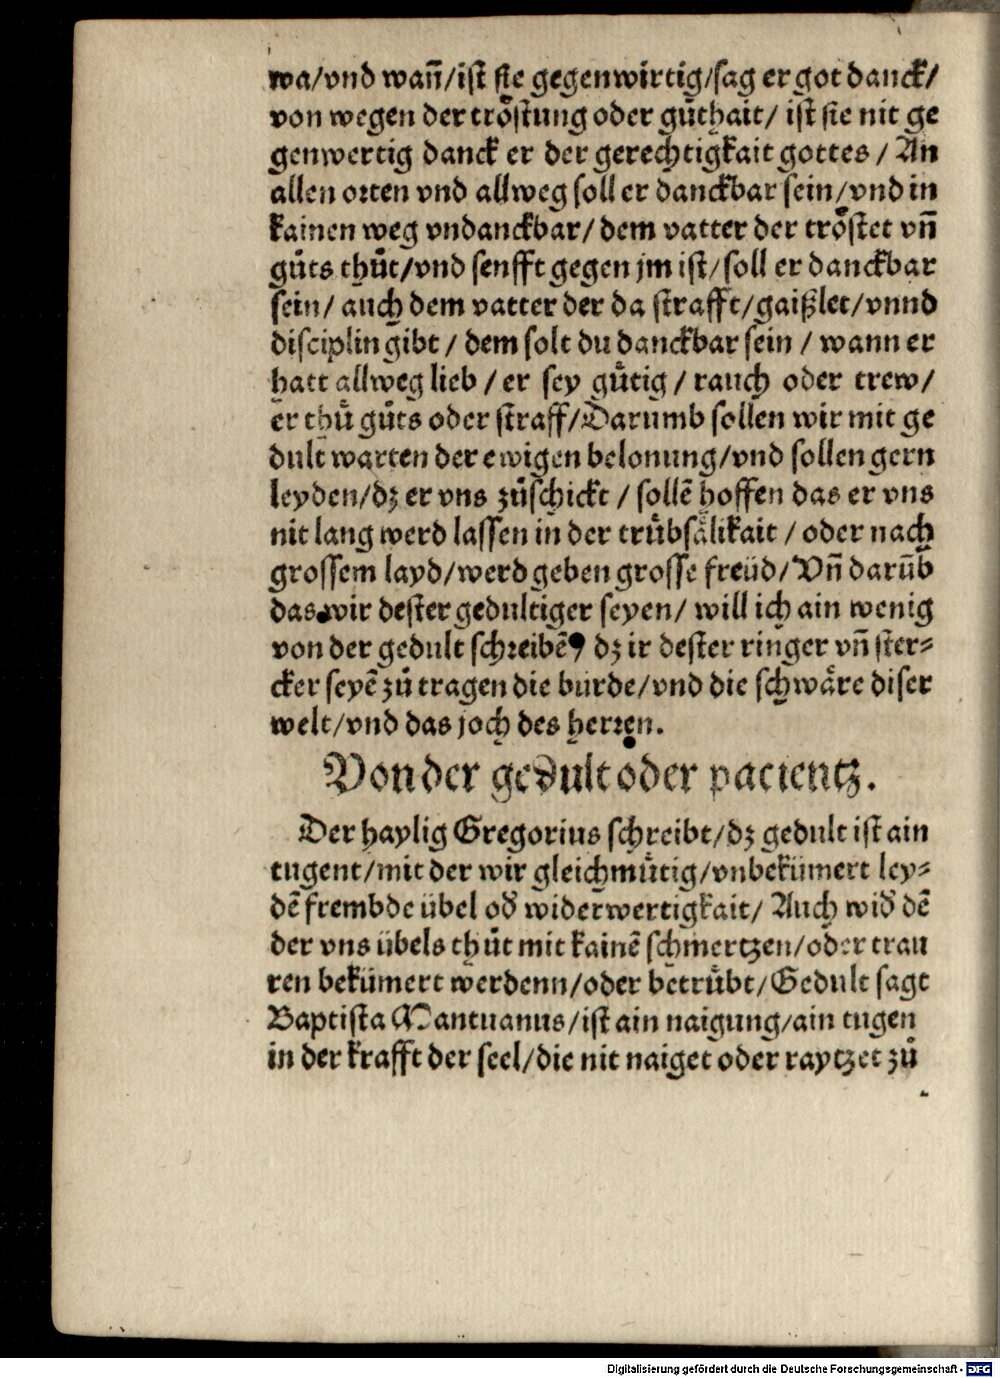 wa/vnd wañ/ist sie gegenwirtig/sag er got danck/
von wegen der troͤstung oder guͦthait/ ist sie nit ge
genwertig danck er der gerechtigkait gottes / An
allen orten vnd allweg soll er danckbar sein/vnd in
kainen weg vndanckbar/ dem vatter der troͤstet vñ
guͦts thuͦt/vnd senfft gegen jm ist/soll er danckbar
sein/ auch dem vatter der da strafft/gaißlet/vnnd
disciplin gibt / dem solt du danckbar sein / wann er
hatt allweg lieb / er sey guͤtig / rauch oder trew/
er thuͤ guͦts oder straff/Darumb sollen wir mit ge
dult warten der ewigen belonung/vnd sollen gern
leyden/dz er vns zuͦschickt / sollē hoffen das er vns
nit lang werd lassen in der truͤbsaͤlikait / oder nach
grossem layd/werd geben grosse freüd/Vñ darūb
das wir dester gedultiger seyen/ will ich ain wenig
von der gedult schreibē/ dz ir dester ringer vñ ster⸗
cker seyē zuͦ tragen die burde/vnd die schwaͤre diser
welt/vnd das joch des herren.
Von der gedult oder pacientz.
Der haylig Gregorius schreibt/dz gedult ist ain
tugent/mit der wir gleichmuͤtig/vnbekümert ley⸗
dē frembde übel od̕ widerwertigkait/ Auch wid̕ dē
der vns übels thuͦt mit kainē schmertzen/oder trau
ren bekümert werdenn/oder betruͤbt/Gedult sagt
Baptista Mantuanus/ist ain naigung/ain tugen
in der krafft der seel/die nit naiget oder raytzet zuͦ
Digitalisierung gefördert durch die Deutsche Forschungsgemeinschaft - DFG